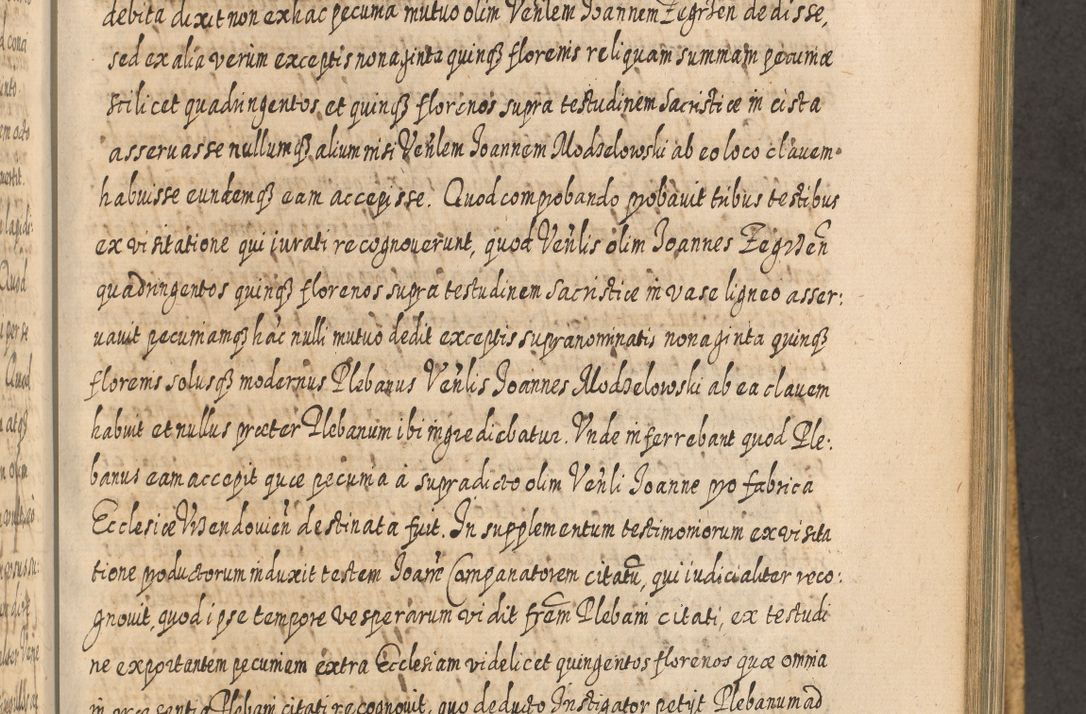 debita dixit non ex hac pecunia mutuo olim Venlem Joannem Zegrzen dedisse,
sed ex alia verum exceptis nonaginta quinqꝫ florenis reliquam summam pecuniæ
scilicet quadringentos et quinqꝫ florenos supra testudinem Sacristiæ in cista
asseruasse nullumqꝫ alium nisi Venlem Joannem Modzelowski ab eo loco clauem
habuisse eundemqꝫ eam accepisse. Quod comprobando probauit tribus testibus
ex visitatione qui iurati recognouerunt, quod Venlis olim Joannes Zegrzen
quadringentos quinqꝫ florenos supra testudinem Sacristiæ in vase ligneo asser:
uauit pecuniamqꝫ hac nulli mutuo dedit exceptis supranominatis nonaginta quinqꝫ
florenis solusqꝫ modernus Plebanus Venlis Joannes Modzelowski ab ea clauem
habuit et nullus præter Plebanum ibi ingrediebatur. Vnde inferrebant quod Ple:
banus eam accepit quæ pecunia a supradicto olim Venli Joanne pro fabrica
Ecclesiæ Wendouien destinata fuit. In supplementum testimoniorum ex visita
tione productorum induxit testem Joane Companatorem citatu, qui iudicialiter reco:
gnouit, quod ipse tempore vesperarum vidit frem Plebani citati, ex testudi
ne exportantem pecuniam extra Ecclesiam videlicet quingentos florenos quæ omnia
in præsentia Plebani citati recognouit, quo deducto Instigator petyt Plebanum ad